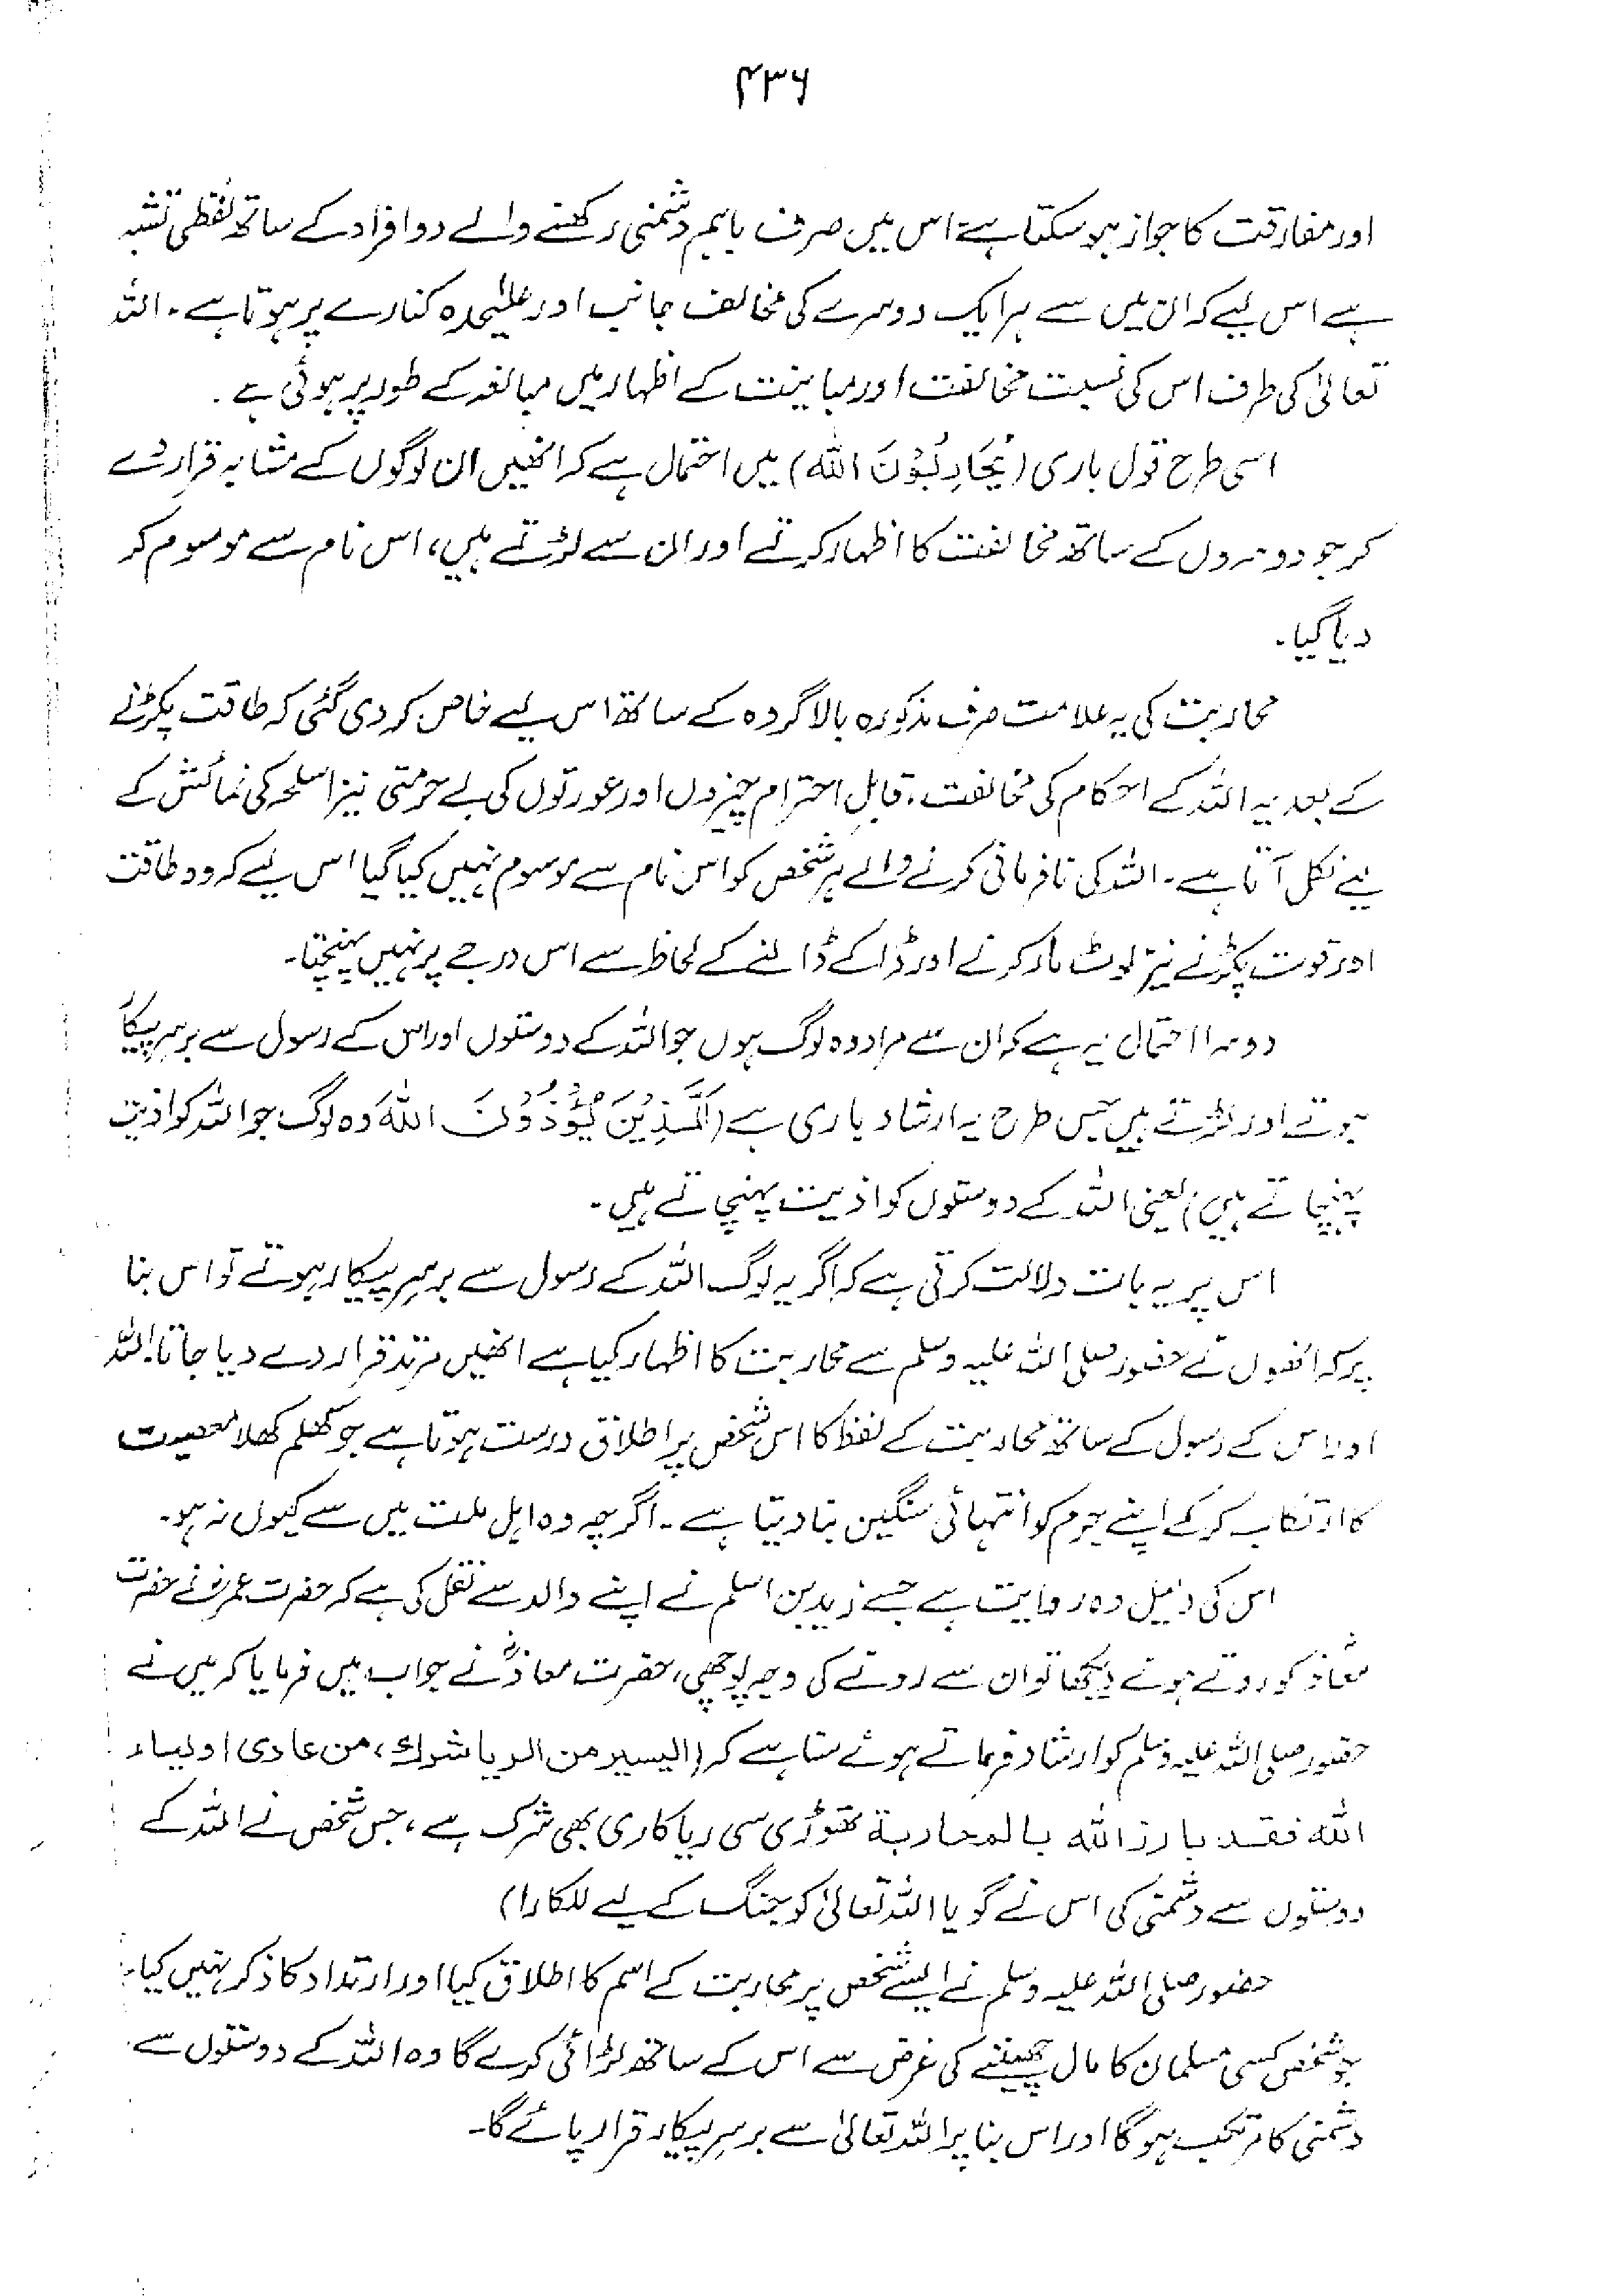 ۴۳۶
اور مفارقت کا جواز ہو سکتا ہے، اس میں صرف باہم دشمنی رکھنے والے دو افراد کے ساتھ لفظی تشبہ
ہے اس لیے کہ ان میں سے ہر ایک دوسرے کی مخالف جانب اور علیٰحدہ کنارے پر ہوتا ہے۔ اللہ
تعالیٰ کی طرف اس کی نسبت مخالفت اور مباینت کے اظہار میں مبالغہ کے طور پر ہوئی ہے۔
اسی طرح قول باری (يُحَارِبُوْنَ اللهَ) میں احتمال ہے کہ انھیں ان لوگوں کے مشابہ قرار دے
کر جو دوسروں کے ساتھ مخالفت کا اظہار کرتے اور ان سے لڑتے ہیں، اس نام سے موسوم کر
دیا گیا۔
محاربت کی یہ علامت صرف مذکورہ بالا گروہ کے ساتھ اس لیے خاص کر دی گئی کہ طاقت پکڑنے
کے بعد یہ اللہ کے احکام کی مخالفت، قابلِ احترام چیزوں اور عورتوں کی بے حرمتی نیز اسلحہ کی نمائش کے
لیے نکل آتا ہے۔ اللہ کی نافرمانی کرنے والے ہر شخص کو اس نام سے موسوم نہیں کیا گیا اس لیے کہ وہ طاقت
اور قوت پکڑنے نیز لوٹ مار کرنے اور ڈاکے ڈالنے کے لحاظ سے اس درجے پر نہیں پہنچتا۔
دوسرا احتمال یہ ہے کہ ان سے مراد وہ لوگ ہوں جو اللہ کے دوستوں اور اس کے رسول سے برسرِ پیکار
ہوتے اور لڑتے ہیں جس طرح یہ ارشاد باری ہے (اَلَّذِيْنَ يُؤْذُوْنَ اللهَ وہ لوگ جو اللہ کو اذیت
پہنچاتے ہیں) یعنی اللہ کے دوستوں کو اذیت پہنچاتے ہیں۔
اس پر یہ بات دلالت کرتی ہے کہ اگر یہ لوگ اللہ کے رسول سے برسرِ پیکار ہوتے تو اس بنا
پر کہ انھوں نے حضور صلی اللہ علیہ وسلم سے محاربت کا اظہار کیا ہے انھیں مرتد قرار دے دیا جاتا۔ اللہ
اور اس کے رسول کے ساتھ محاربت کے لفظ کا اس شخص پر اطلاق درست ہوتا ہے جو کھلم کھلا معصیت
کا ارتکاب کر کے اپنے جرم کو انتہائی سنگین بنا دیتا ہے۔ اگرچہ وہ اہل ملت میں سے کیوں نہ ہو۔
اس کی دلیل وہ روایت ہے جسے زید بن اسلم نے اپنے والد سے نقل کی ہے کہ حضرت عمرؓ نے حضرت
معاذؓ کو روتے ہوئے دیکھا تو ان سے رونے کی وجہ پوچھی، حضرت معاذؓ نے جواب میں فرمایا کہ میں نے
حضور صلی اللہ علیہ وسلم کو ارشاد فرماتے ہوئے سنا ہے کہ (الیسیر من الریا شرك، من عادی اولیاء
الله فقد بارز الله بالمحاربة تھوڑی سی ریاکاری بھی شرک ہے، جس شخص نے اللہ کے
دوستوں سے دشمنی کی اس نے گویا اللہ تعالیٰ کو جنگ کے لیے للکارا)
حضور صلی اللہ علیہ وسلم نے ایسے شخص پر محاربت کے اسم کا اطلاق کیا اور ارتداد کا ذکر نہیں کیا۔
جو شخص کسی مسلمان کا مال چھیننے کی غرض سے اس کے ساتھ لڑائی کرے گا وہ اللہ کے دوستوں سے
دشمنی کا مرتکب ہوگا اور اس بنا پر اللہ تعالیٰ سے برسرِ پیکار قرار پائے گا۔